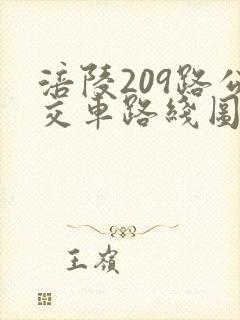 涪陵209路公
交車路綫圖
王嶺